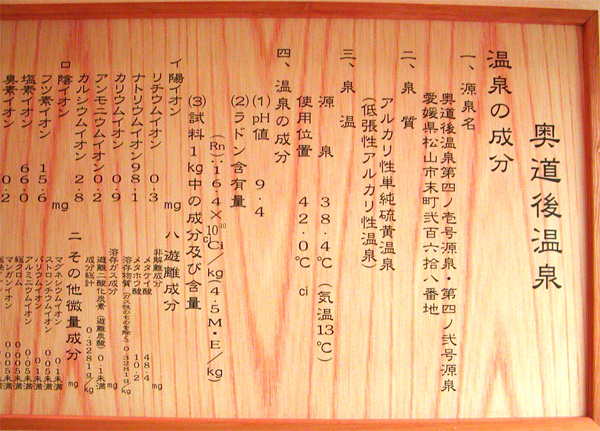 奥道後温泉
温泉の成分
一、源泉名
奥道後温泉第四ノ壱号源泉・第四ノ弐号源泉
愛媛県松山市末町弐百六拾八番地
二、泉質
アルカリ性単純硫黄温泉
(低張性アルカリ性温泉)
三、泉温
源泉 38.4℃(気温13℃)
使用位置 42.0℃ ci
四、温泉の成分
(1)pH値 9.4
(2)ラドン含有量
(Rn…16.4×10 Ci/kg(4.5M・E/kg)
(3)試料1kg中の成分及び含量
イ陽イオン mg
リチウムイオン 0.3
ナトリウムイオン98.1
カリウムイオン 0.9
アンモニウムイオン0.2
カルシウムイオン 2.8
ロ陰イオン mg
フツ素イオン 15.6
塩素イオン 66.0
臭素イオン 0.2
ハ遊離成分
非解離成分 mg
メタケイ酸 48.4
メタホウ酸 10.2
溶存物質 0.3281g/kg
溶存ガス成分 mg
遊離二酸化炭素(遊離炭酸)0.1未満
成分総計 0.3281g/kg
ニその他微量成分 mg
マグネシウムイオン 0.1未満
ストロンチウムイオン 0.05未満
バリウムイオン 0.1未満
アルミニウムイオン 0.05未満
総クロム 0.005未満
マンガンイオン 0.005未満